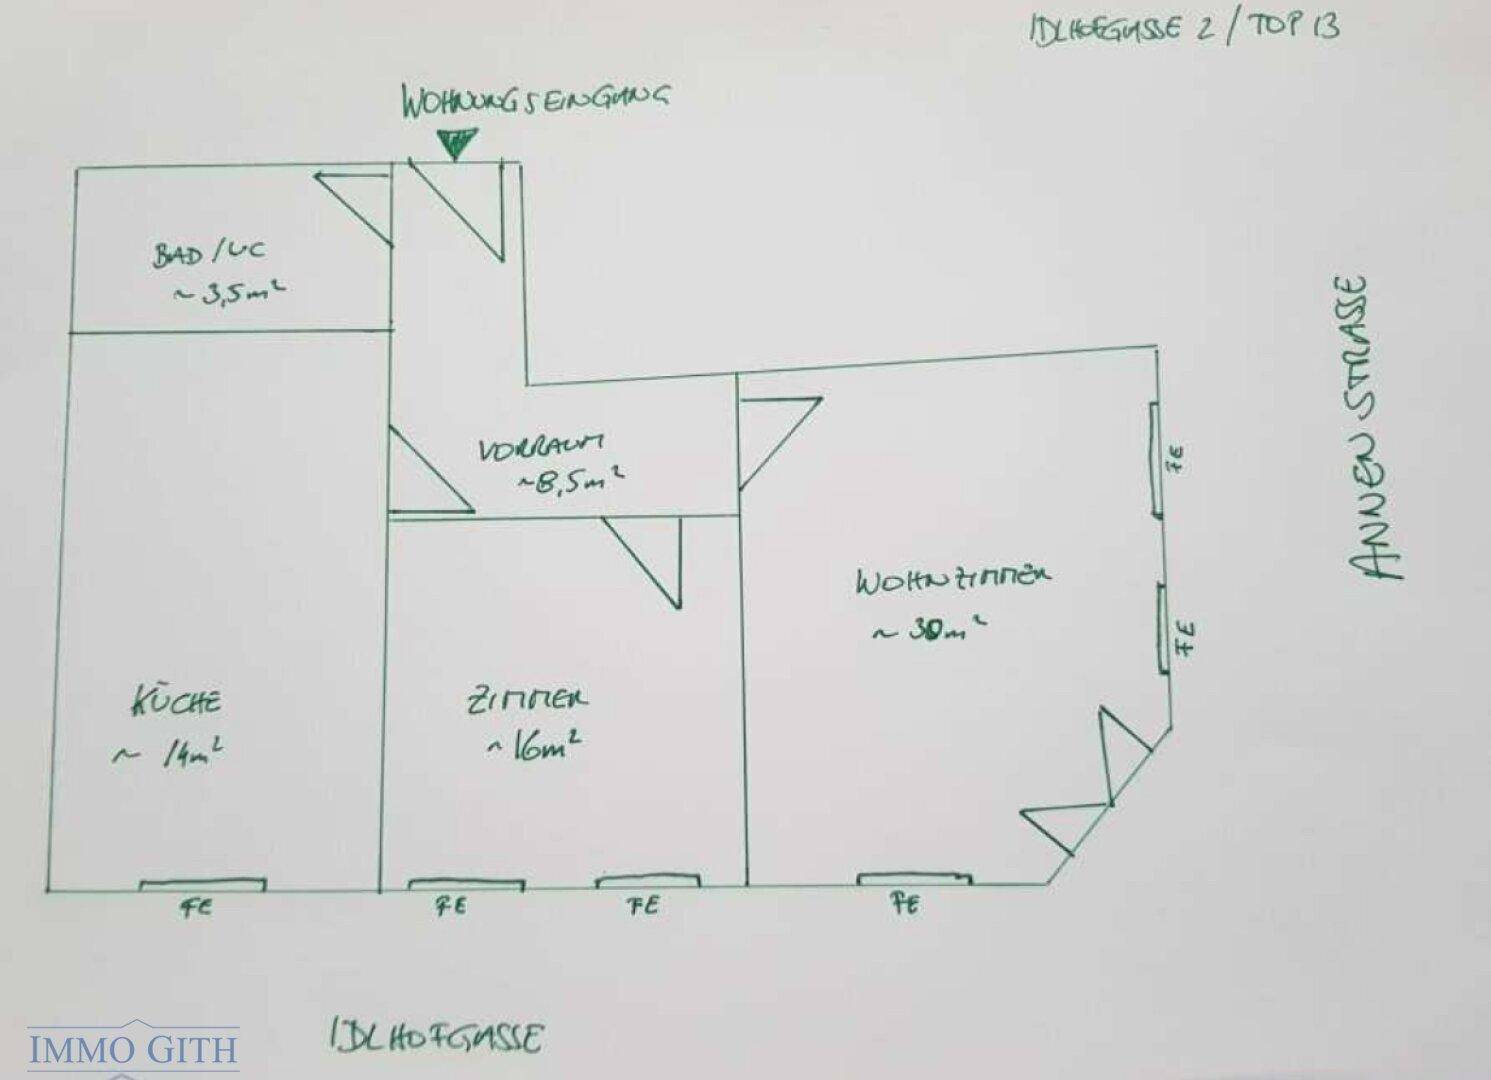 IDLHOFGASSE 2 / TOP 13
WOHNUNGSEINGANG
BAD / WC
~ 3,5m²
VORRAUM
~ 8,5m²
WOHNZIMMER
~ 30m²
KÜCHE
~ 14m²
ZIMMER
~ 16m²
FE
FE
FE
FE
FE
FE
ANNENSTRASSE
IDLHOFGASSE
IMMO GITH